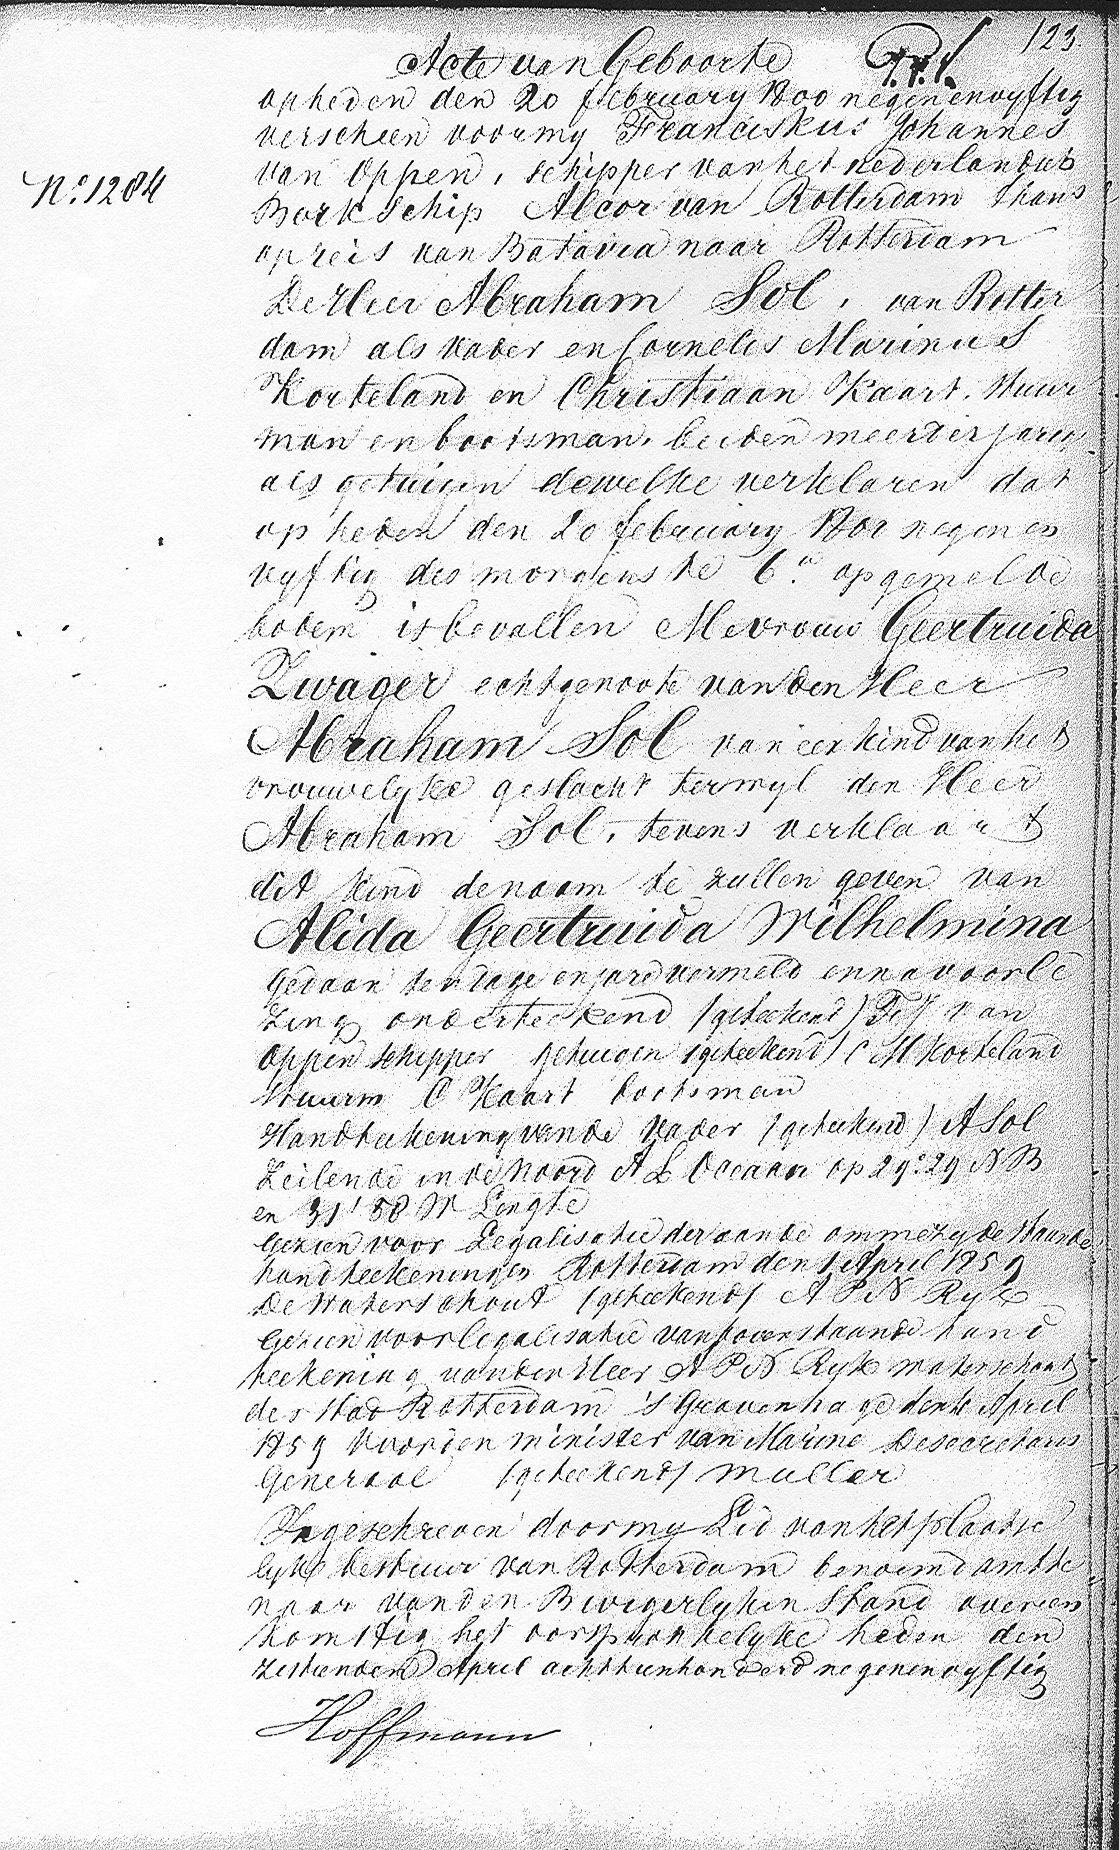 123.
Acte van Geboorte
op heden den 20 february 1800 negenenvyftig
verscheen voor my Franciskus Johannes
van Oppen, schipper van het nederlandsch
No. 1284
Bark schip Alcor van Rotterdam thans
op reis van Batavia naar Rotterdam
De Heer Abraham Sol, van Rotter
dam als vader en Cornelis Marinus
Korteland en Christiaan Kaart, Stuur
man en bootsman, beiden meerderjarig
als getuigen dewelke verklaren dat
op heden den 20 february 1800 negen en
vyftig des morgens te 6 u op gemelde
bodem is bevallen Mevrouw Geertruida
Zwager echtgenoote van den Heer
Abraham Sol van een kind van het
vrouwelyke geslacht terwyl den Heer
Abraham Sol, tevens verklaart
dit kind de naam te zullen geven van
Alida Geertruida Wilhelmina
Gedaan ten dage en jare vermeld en na voorle
zing onderteekend (geteekend) F J van
Oppen schipper getuigen (geteekend) C M Korteland
Stuurm C Kaart bootsman
Handteekening van de vader (geteekend) A Sol
Zeilende in de Noord Atl Oceaan op 29° 29 N B
en 31' 58 W Lengte
Gezien voor Legalisatie der aan de ommezyde staande
handteekeningen Rotterdam den 1 April 1859
De Waterschout (geteekend) A P N Ryk
Gezien voor legalisatie van bovenstaande hand
teekening van den Heer A P N Ryk waterschout
der stad Rotterdam 's Gravenhage den April
1859 Voor den minister van Marine De secretaris
Generaal (geteekend) Muller
Ingeschreven door my Lid van het plaatse
lyke bestuur van Rotterdam benoemd ambte
naar van den Burgerlyken Stand overeen
komstig het oorspronkelyke heden den
zestienden April achttienhonderd negenenvyftig
Hoffmann